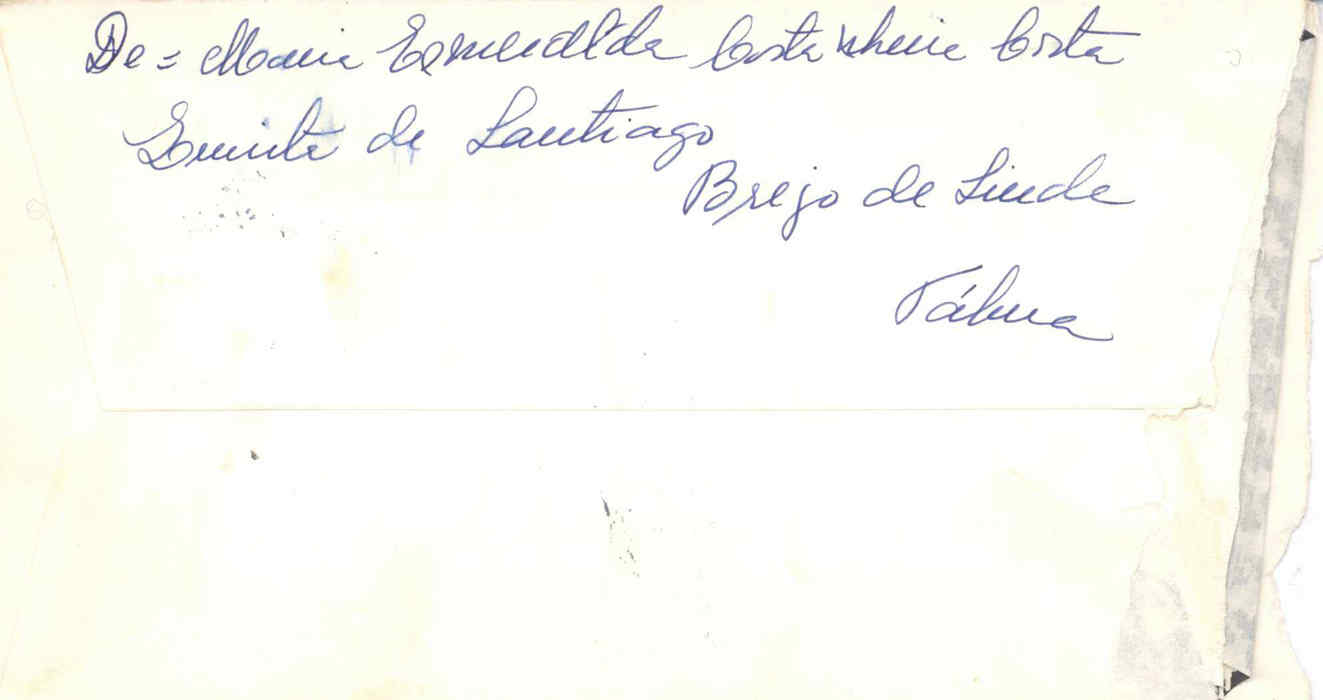 De = Maria Esmeralda Costa Costa
Quinta de Santiago
Brejo de Linde
Tábua